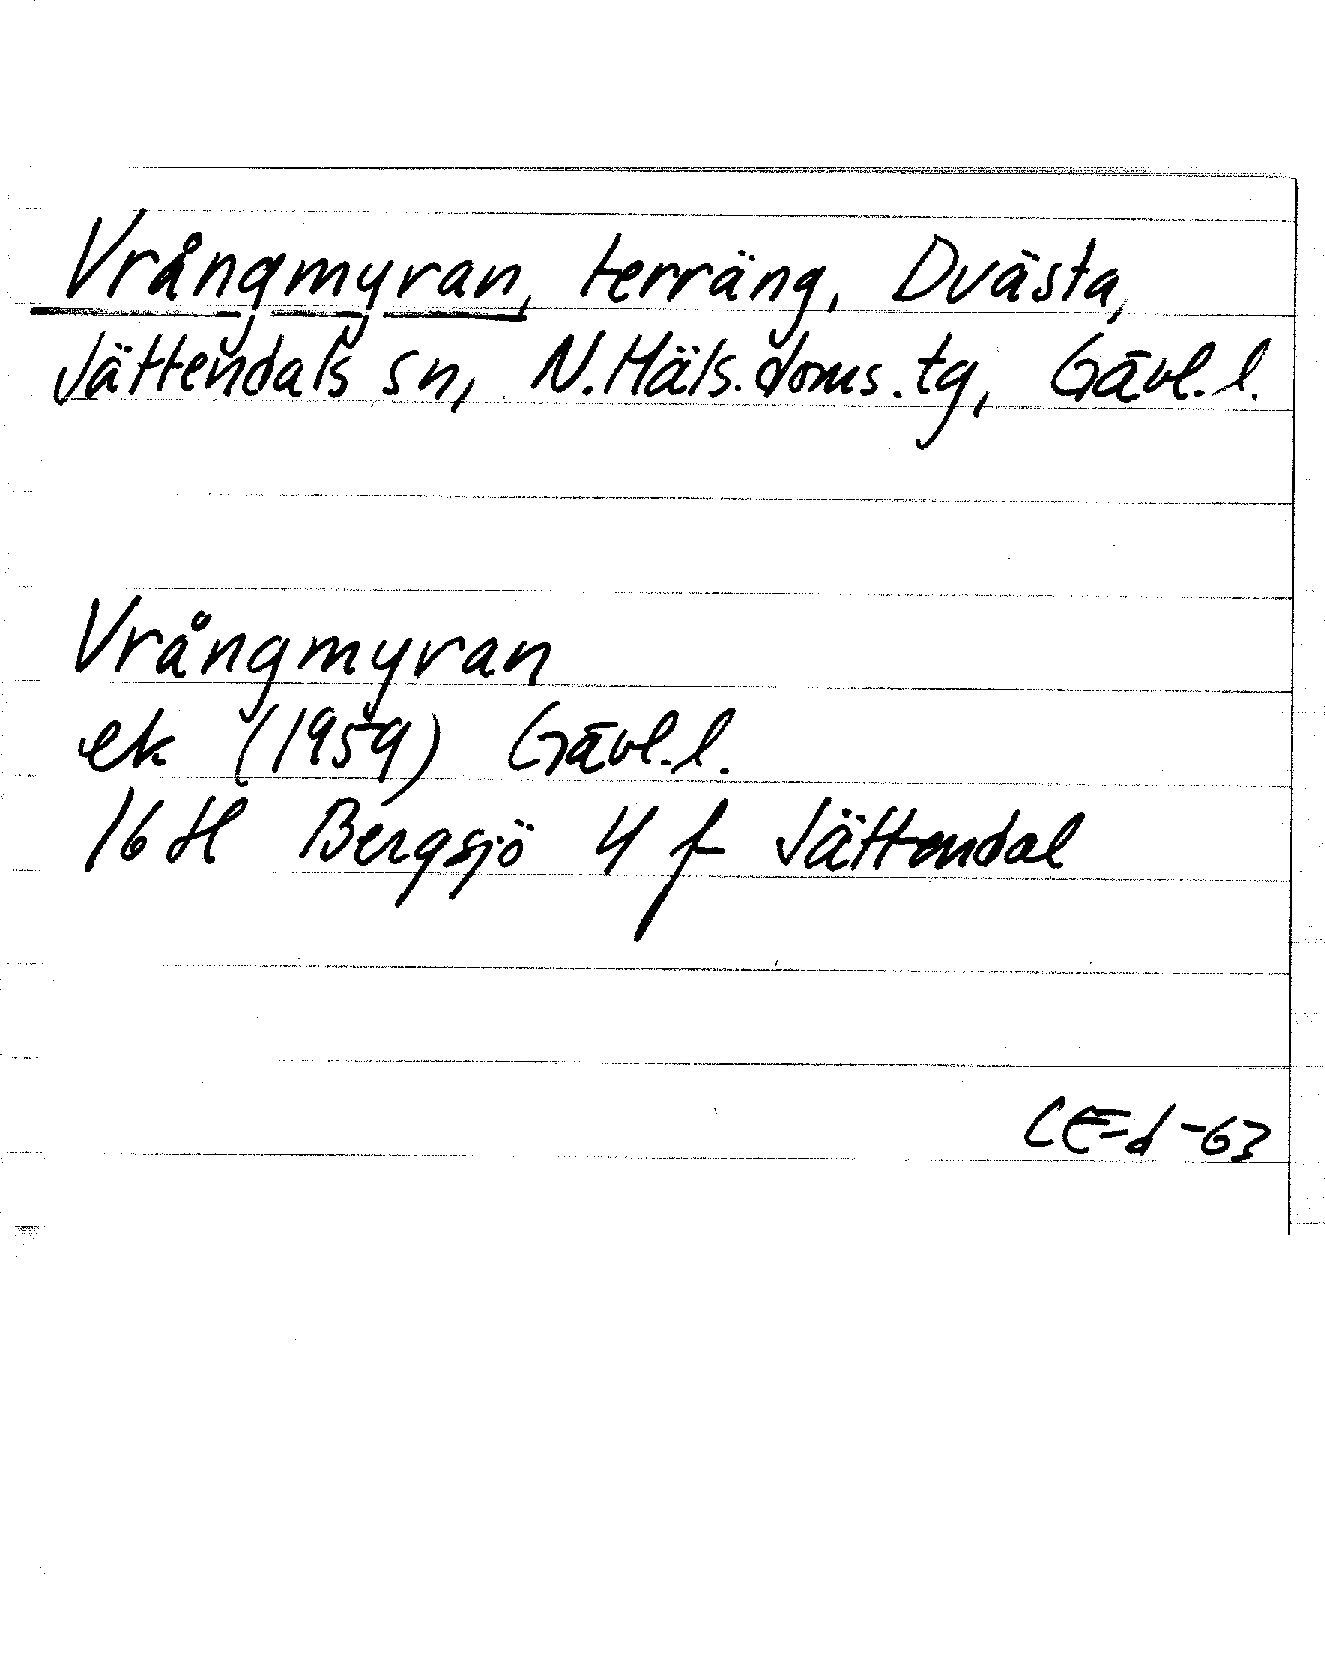 Vrångmyran, terräng, Dvästa,
Jättendals sn, N.Häls.doms.tg, Gävl.l.
Vrångmyran
ek (1959) Gävl.l.
16 H Bergsjö 4 f Jättendal
CEd -63